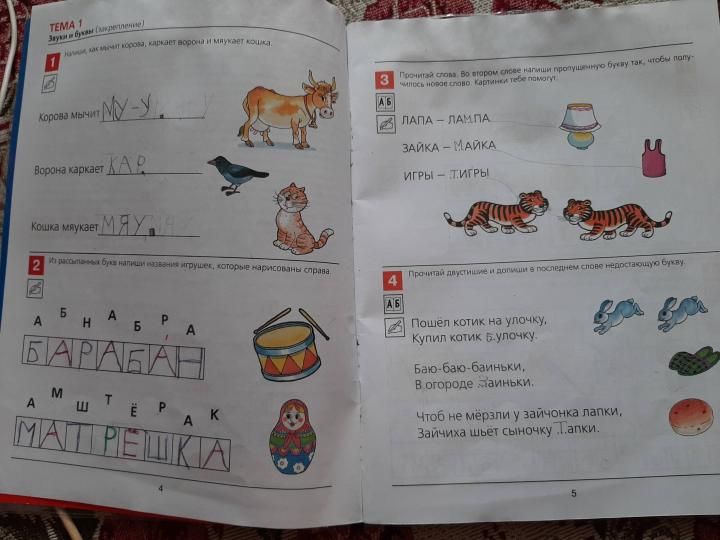 ТЕМА 1
Звуки и буквы (закрепление)
1 Напиши, как мычит корова, каркает ворона и мяукает кошка.
Корова мычит МУ-У.
Ворона каркает КАР.
Кошка мяукает МЯУ.
2 Из рассыпанных букв напиши названия игрушек, которые нарисованы справа.
А Б Н А Б Р А
БАРАБАН
А М Ш Т Ё Р А К
МАТРЁШКА
4
3 Прочитай слова. Во втором слове напиши пропущенную букву так, чтобы полу-
чилось новое слово. Картинки тебе помогут.
АБ
ЛАПА – ЛАМПА
ЗАЙКА – МАЙКА
ИГРЫ – ТИГРЫ
4 Прочитай двустишие и допиши в последнем слове недостающую букву.
АБ
Пошёл котик на улочку,
Купил котик булочку.
Баю-баю-баиньки,
В огороде Заиньки.
Чтоб не мёрзли у зайчонка лапки,
Зайчиха шьёт сыночку Тапки.
5